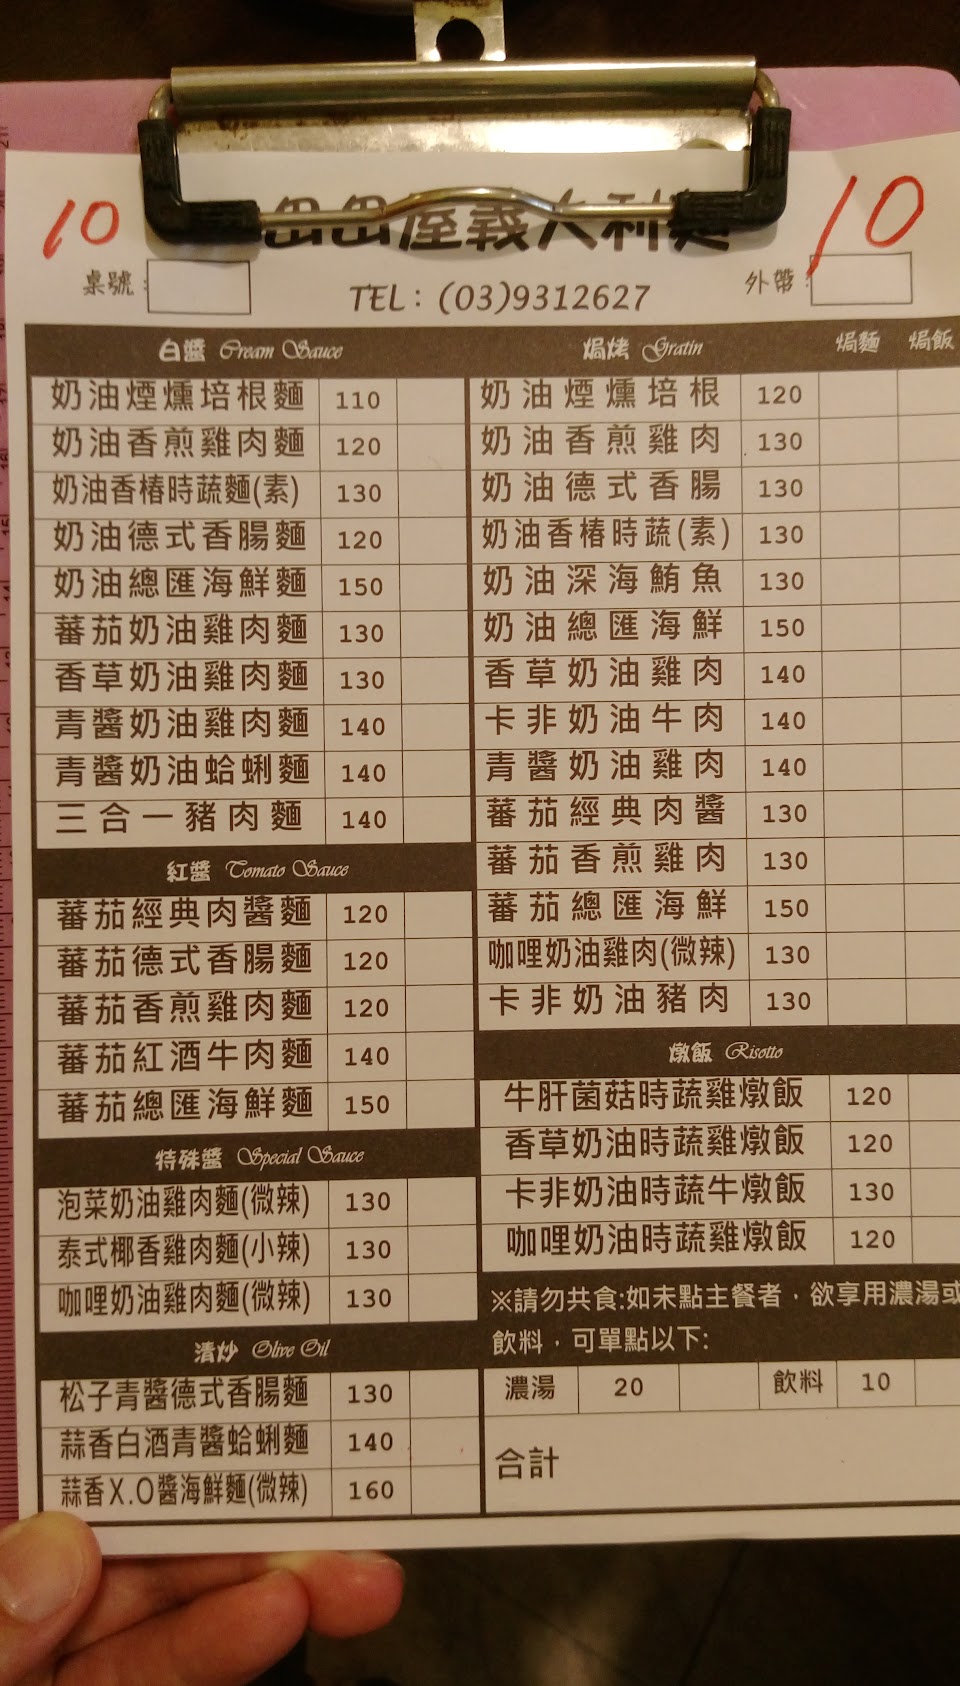 10
10
屋義大利麵
桌號:
TEL: (03)9312627
外帶:
白醬 Cream Sauce
奶油煙燻培根麵 110
奶油香煎雞肉麵 120
奶油香椿時蔬麵(素) 130
奶油德式香腸麵 120
奶油總匯海鮮麵 150
蕃茄奶油雞肉麵 130
香草奶油雞肉麵 130
青醬奶油雞肉麵 140
青醬奶油蛤蜊麵 140
三合一豬肉麵 140
紅醬 Tomato Sauce
蕃茄經典肉醬麵 120
蕃茄德式香腸麵 120
蕃茄香煎雞肉麵 120
蕃茄紅酒牛肉麵 140
蕃茄總匯海鮮麵 150
特殊醬 Special Sauce
泡菜奶油雞肉麵(微辣) 130
泰式椰香雞肉麵(小辣) 130
咖哩奶油雞肉麵(微辣) 130
清炒 Olive Oil
松子青醬德式香腸麵 130
蒜香白酒青醬蛤蜊麵 140
蒜香X.O醬海鮮麵(微辣) 160
焗烤 Gratin 焗麵 焗飯
奶油煙燻培根 120
奶油香煎雞肉 130
奶油德式香腸 130
奶油香椿時蔬(素) 130
奶油深海鮪魚 130
奶油總匯海鮮 150
香草奶油雞肉 140
卡非奶油牛肉 140
青醬奶油雞肉 140
蕃茄經典肉醬 130
蕃茄香煎雞肉 130
蕃茄總匯海鮮 150
咖哩奶油雞肉(微辣) 130
卡非奶油豬肉 130
燉飯 Risotto
牛肝菌菇時蔬雞燉飯 120
香草奶油時蔬雞燉飯 120
卡非奶油時蔬牛燉飯 130
咖哩奶油時蔬雞燉飯 120
※請勿共食:如未點主餐者,欲享用濃湯或
飲料,可單點以下:
濃湯 20 飲料 10
合計